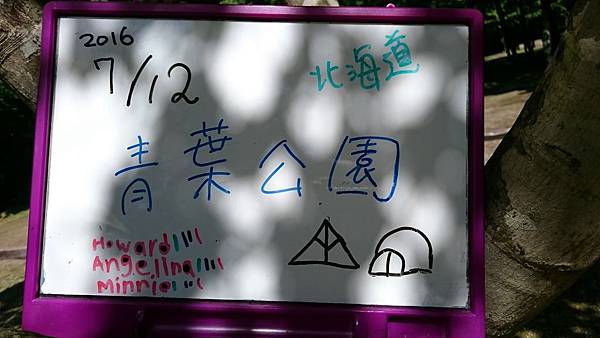 2016
7/12
北海道
青葉公園
Howard
Angelina
Minnie